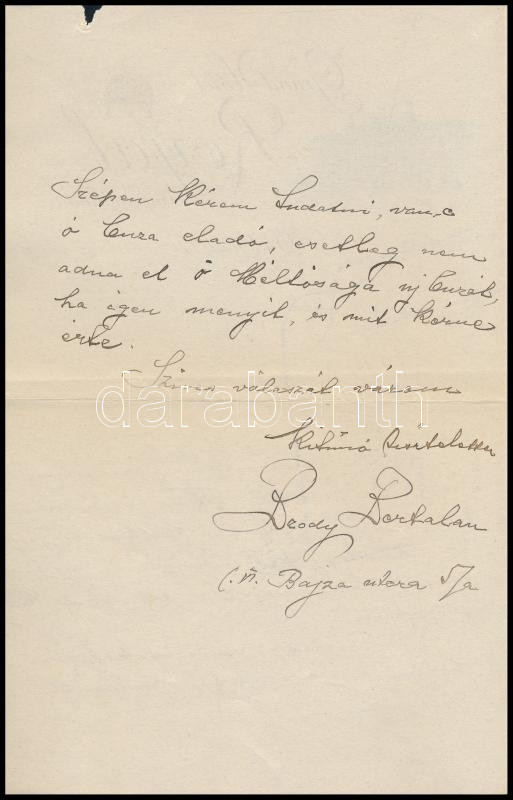 Szépen kérem tudatni, van-e
ó búza eladó, esetleg nem
adna el ő Méltósága új búzát,
ha igen menyit, és mit kérne
érte.
Szives válaszát várom
Kitűnő tisztelettel
Brody Bertalan
Bajza utcza 5/a
darabanth